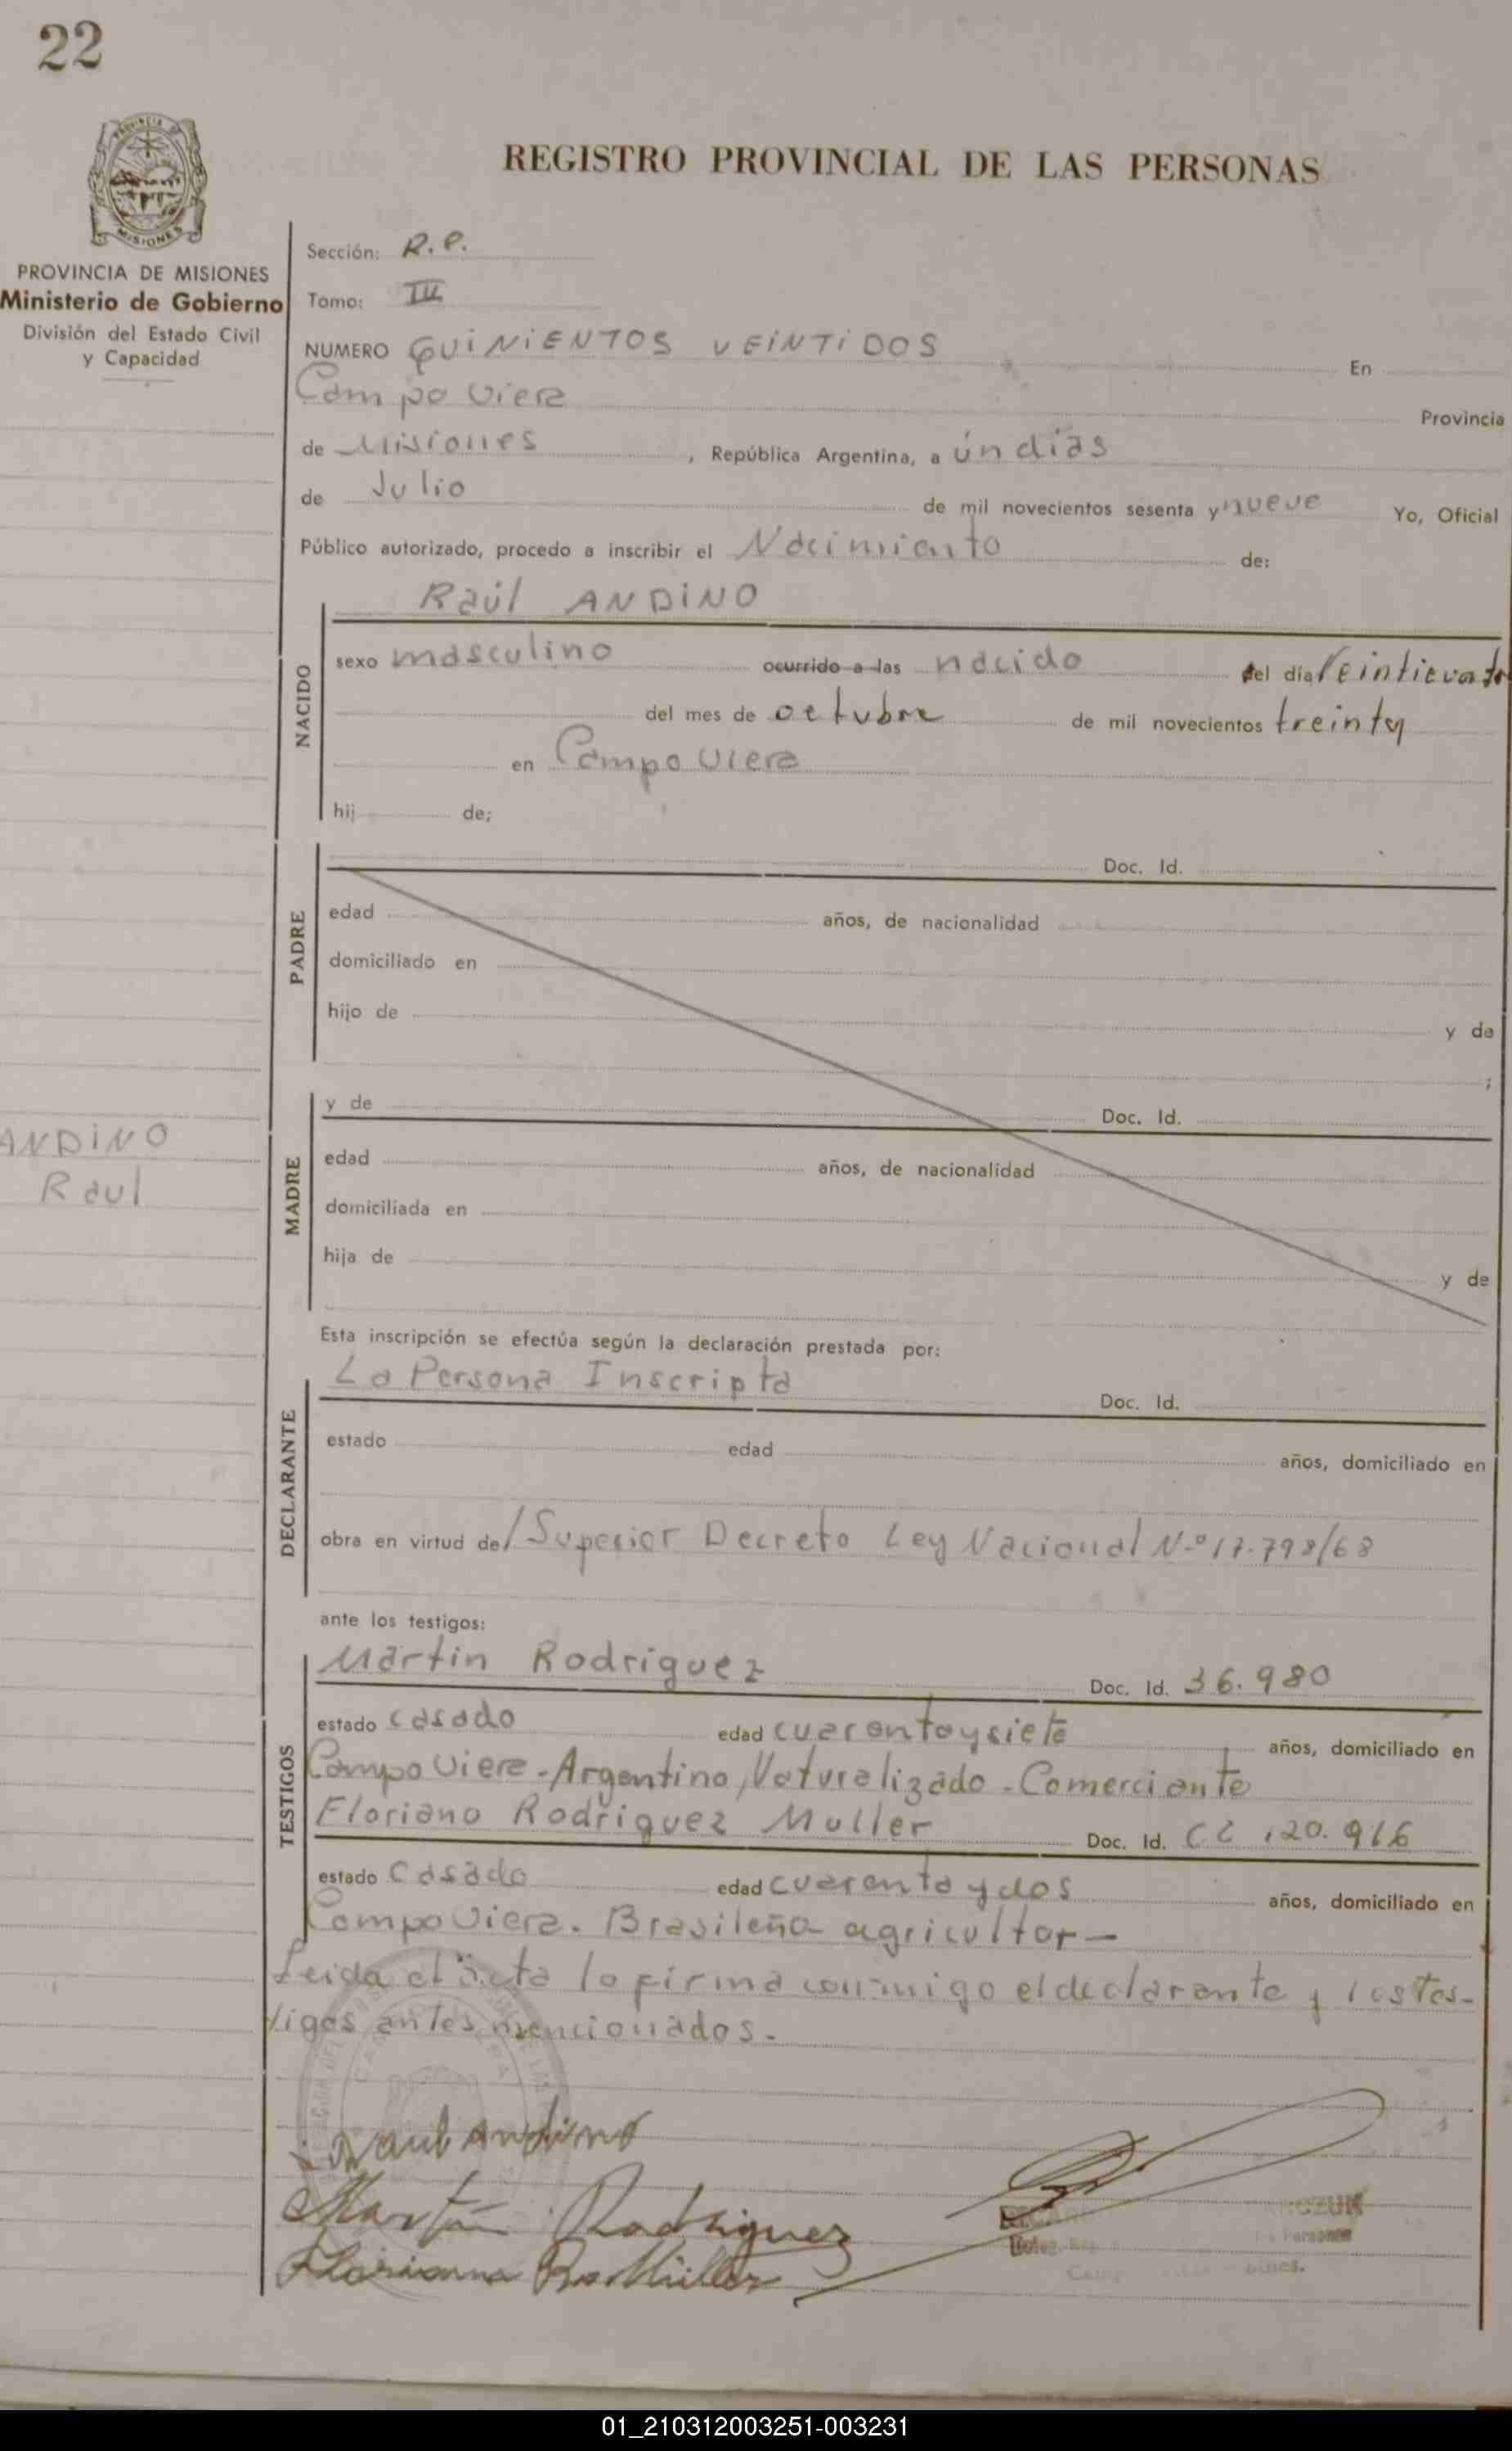 22
REGISTRO PROVINCIAL DE LAS PERSONAS
PROVINCIA DE
MISIONES
PROVINCIA DE MISIONES
Ministerio de Gobierno
División del Estado Civil
y Capacidad
Sección: R.P.
Tomo: III
NUMERO QUINIENTOS VEINTIDOS En
Campo Viera Provincia
de Misiones, República Argentina, a ún días
de Julio de mil novecientos sesenta y nueve Yo, Oficial
Público autorizado, procedo a inscribir el Nacimiento de:
NACIDO
Raúl ANDINO
sexo masculino ocurrido a las nacido del día
del mes de octubre de mil novecientos treinta
en Campo Viera
hij de;
PADRE
Doc. Id.
edad años, de nacionalidad
domiciliado en
hijo de y de
;
MADRE
y de Doc. Id.
ANDINO
Raul
edad años, de nacionalidad
domiciliada en
hija de y de
Esta inscripción se efectúa según la declaración prestada por:
DECLARANTE
La Persona Inscripta Doc. Id.
estado edad años, domiciliado en
obra en virtud de/ Superior Decreto Ley Nacional N.º 17.798/68
ante los testigos:
TESTIGOS
Martin Rodriguez Doc. Id. 36.980
estado casado edad cuarenta y siete años, domiciliado en
Campo Viera - Argentino, Naturalizado - Comerciante
Floriano Rodriguez Muller Doc. Id. 120.916
estado casado edad cuarenta y dos años, domiciliado en
Campo Viera. Brasileña agricultor -
Leida el acta la firma conmigo el declarante y los tes-
tigos antes mencionados.
Raul Andino
Martín Rodriguez
Müller
01_210312003251-003231